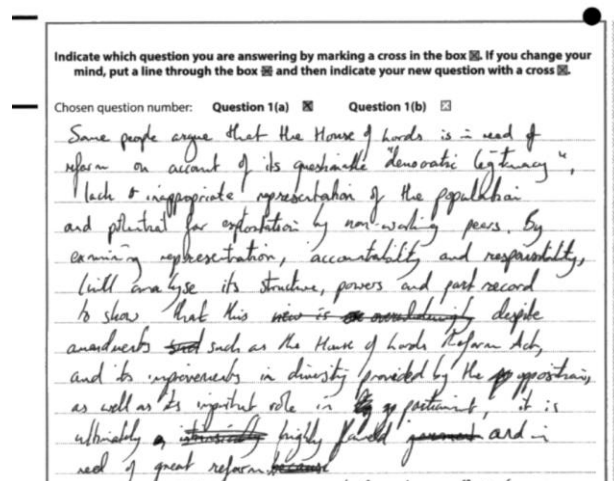 Indicate which question you are answering by marking a cross in the box ☒. If you change your
mind, put a line through the box and then indicate your new question with a cross ☒.
Chosen question number: Question 1(a) ☒ Question 1(b) ☒
Some people argue that the House of Lords is in need of
reform on account of its questionable "democratic legitimacy",
lack & inappropriate representation of the population
and potential for exploitation by non-working peers. By
examining representation, accountability and responsibility,
I will analyse its structure, powers and past record
to show that this view is overwhelmingly despite
amendments such as the House of Lords Reform Act,
and its improvements in diversity provided by the opposition,
as well as its important role in parliament, it is
ultimately a intrinsically highly flawed and in
need of great reform because